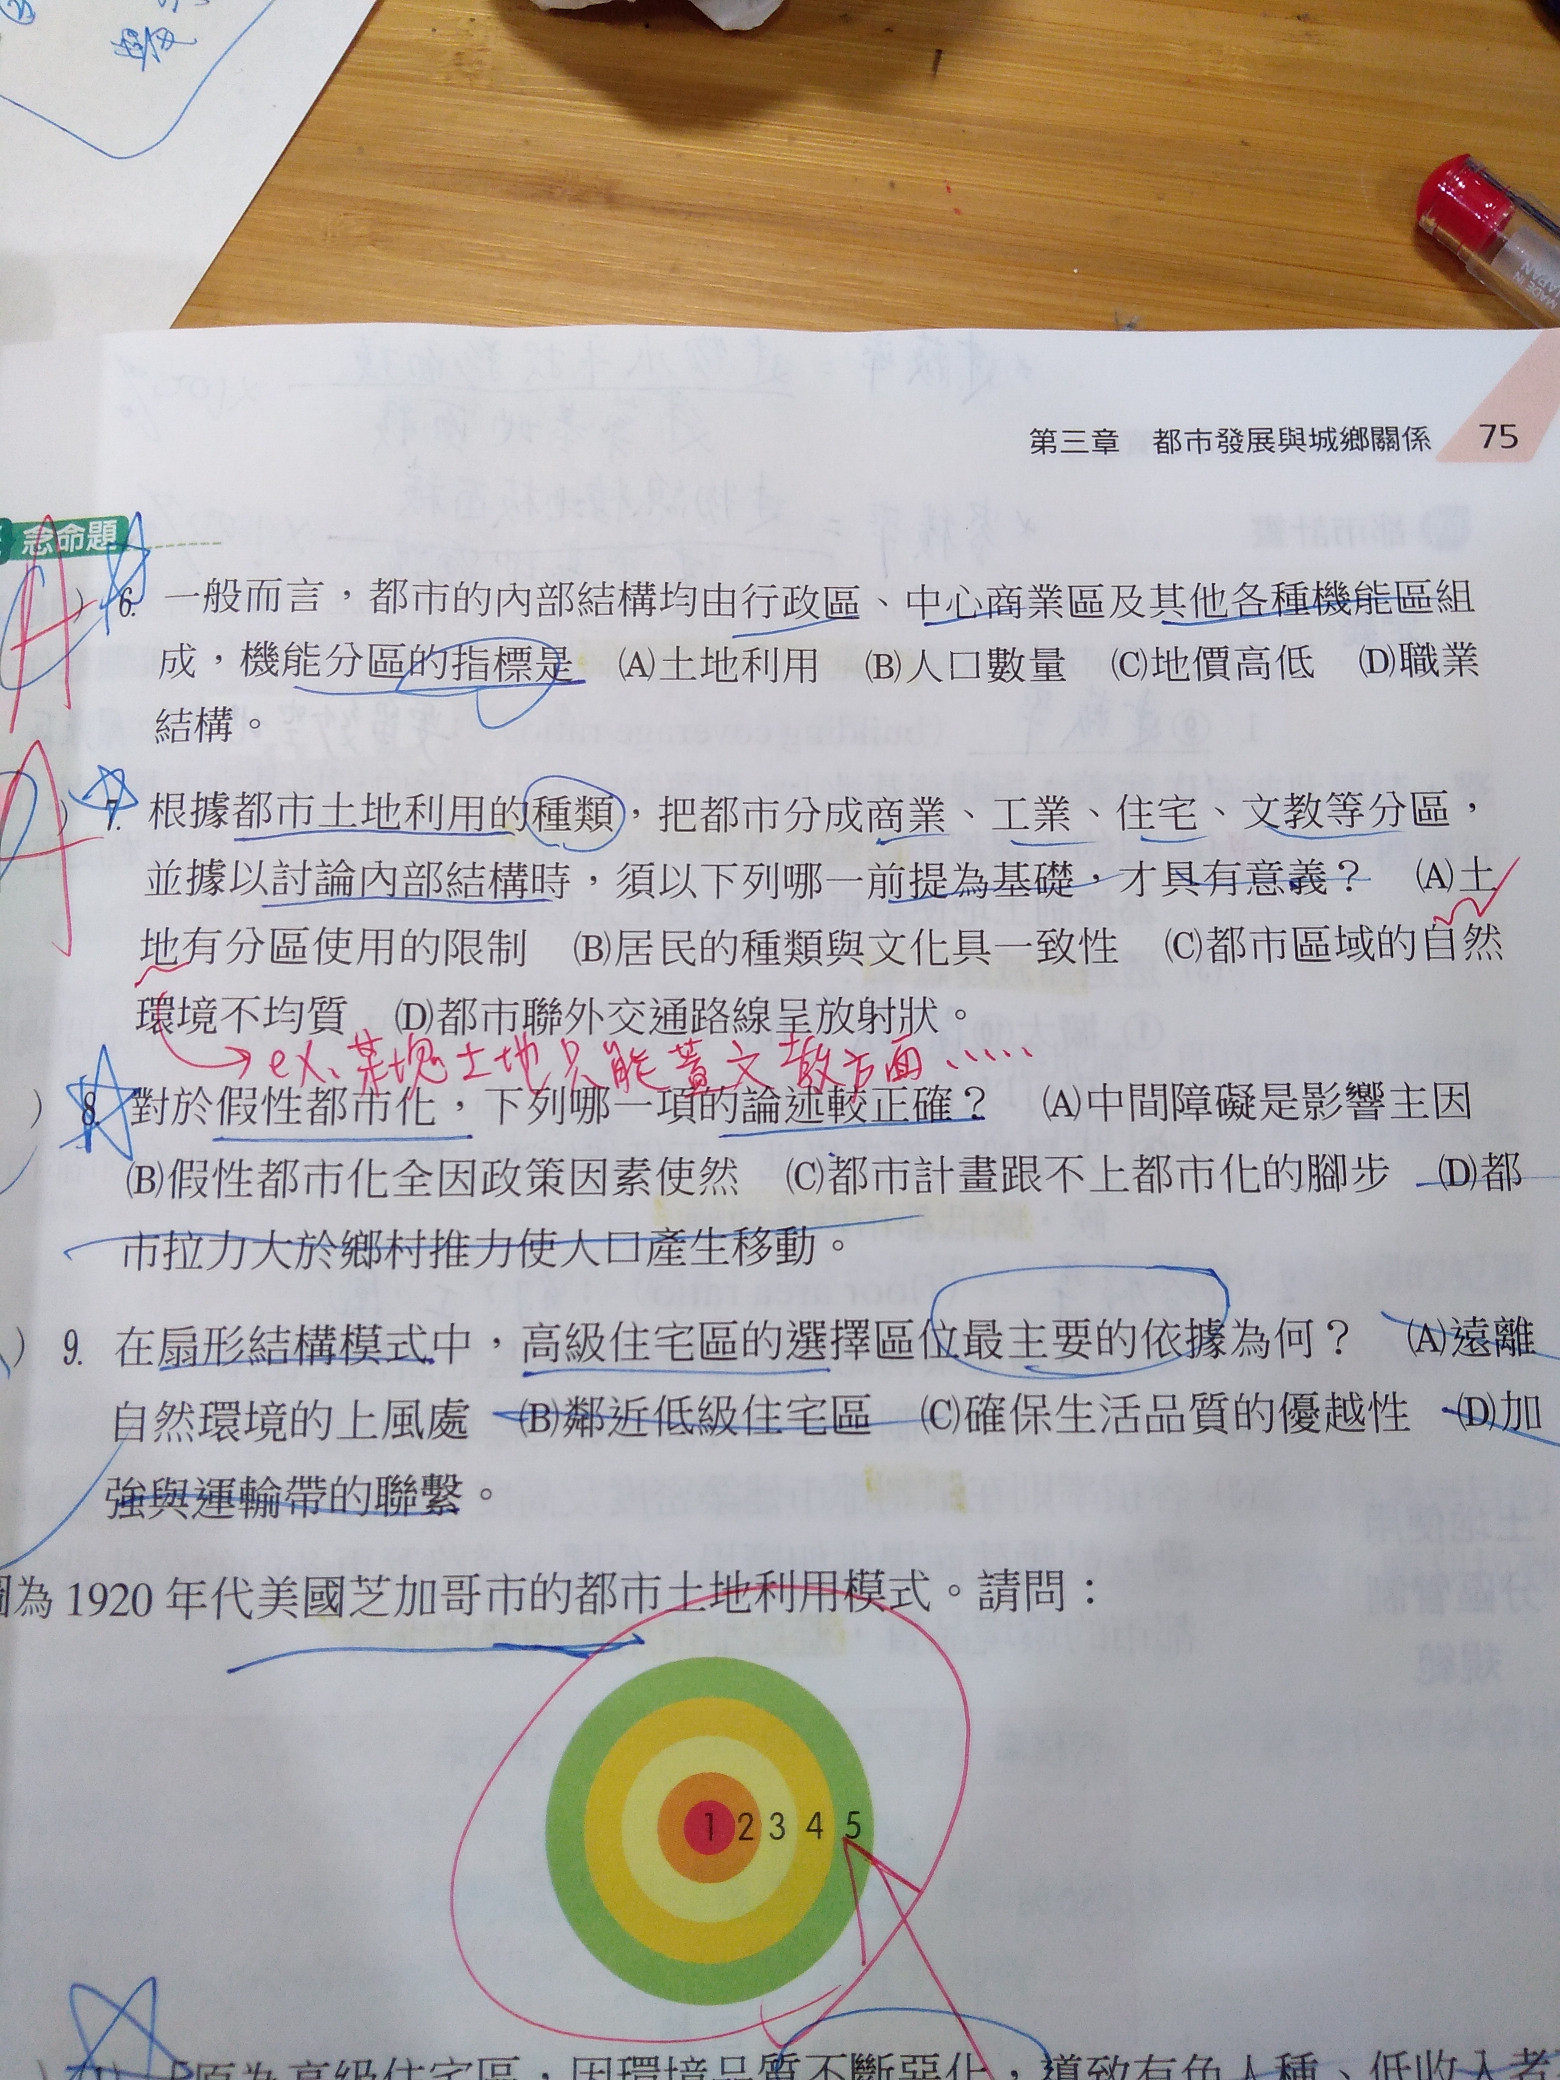 第三章 都市發展與城鄉關係 75
念命題
A ) 6. 一般而言，都市的內部結構均由行政區、中心商業區及其他各種機能區組
成，機能分區的指標是 (A)土地利用 (B)人口數量 (C)地價高低 (D)職業
結構。
A ) 7. 根據都市土地利用的種類，把都市分成商業、工業、住宅、文教等分區，
並據以討論內部結構時，須以下列哪一前提為基礎，才具有意義？ (A)土
地有分區使用的限制 (B)居民的種類與文化具一致性 (C)都市區域的自然
環境不均質 (D)都市聯外交通路線呈放射狀。
→ ex、某塊土地只能蓋文教方面……
) 8. 對於假性都市化，下列哪一項的論述較正確？ (A)中間障礙是影響主因
(B)假性都市化全因政策因素使然 (C)都市計畫跟不上都市化的腳步 (D)都
市拉力大於鄉村推力使人口產生移動。
) 9. 在扇形結構模式中，高級住宅區的選擇區位最主要的依據為何？ (A)遠離
自然環境的上風處 (B)鄰近低級住宅區 (C)確保生活品質的優越性 (D)加
強與運輸帶的聯繫。
圖為 1920 年代美國芝加哥市的都市土地利用模式。請問：
1 2 3 4 5
「原為高級住宅區，因環境品質不斷惡化，導致有色人種、低收入者
MADE IN
JAPAN